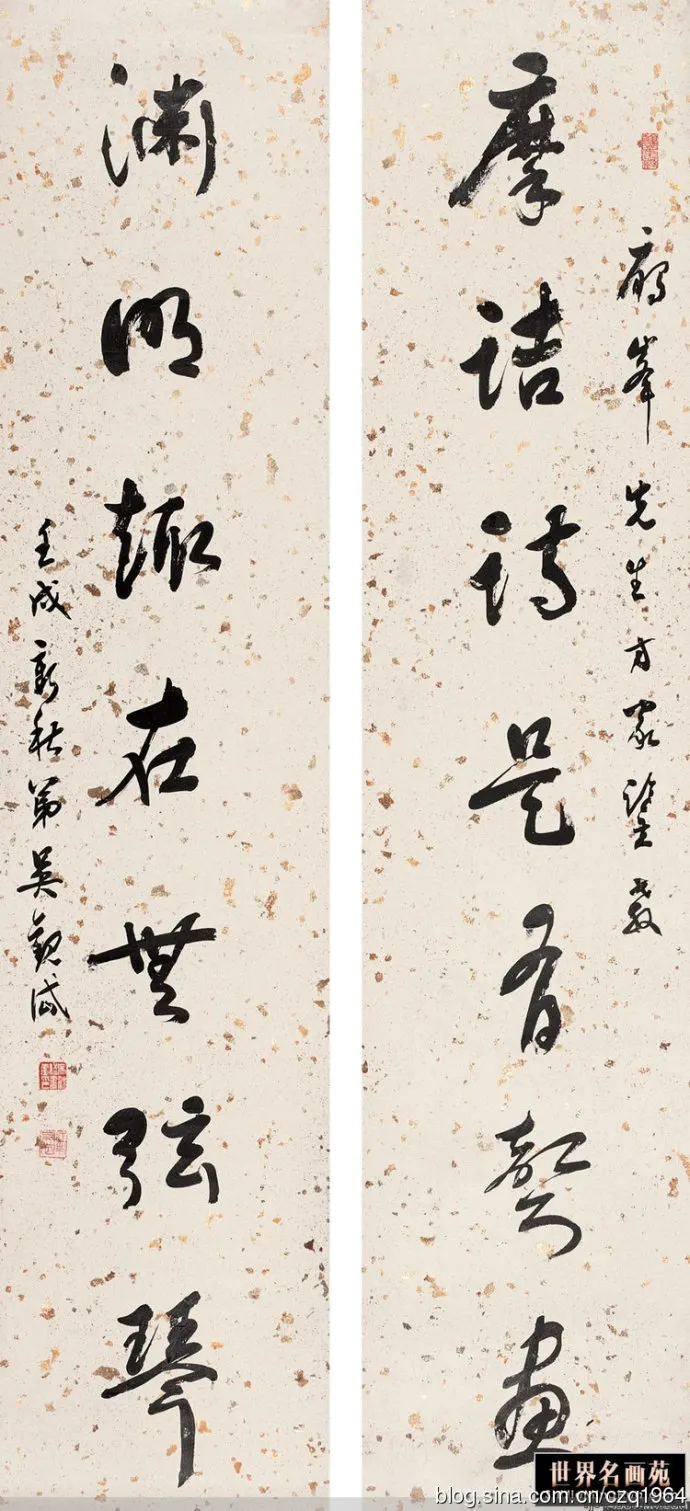 摩詰詩是有聲畫
峯先生方家鑒教
淵明趣在無弦琴
壬戌新秋弟吳觀岱
世界名画苑
blog.sina.com.cn/czq1964